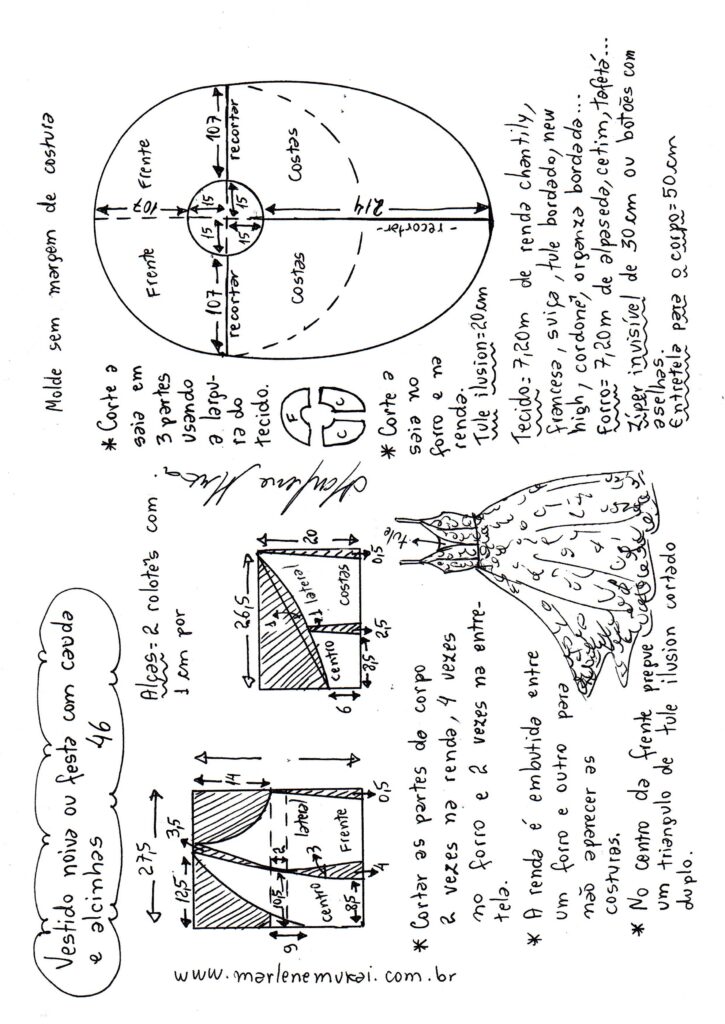 Vestido noiva ou festa com cauda
e alcinhas 46
Alças = 2 rolotês com
1 cm por
Molde sem margem de costura
27,5
12,5
3,5
14
9
10,5
2
3
centro
lateral
Frente
8,5
4
0,5
26,5
20
1
1
lateral
centro
costas
6
8,5
2,5
0,5
www.marlenemukai.com.br
* Corte a
saia em
3 partes
usando
a largu-
ra do
tecido.
F
C
C
* Corte a
saia no
forro e na
renda.
Tule ilusion=20cm
Frente
Frente
107
107
107
15
15
15
15
recortar
recortar
costas
costas
214
-recortar-
Marlene Mukai
* Cortar as partes do corpo
2 vezes na renda, 4 vezes
no forro e 2 vezes na entre-
tela.
* A renda é embutida entre
um forro e outro para
não aparecer as
costuras.
* No centro da frente pregue
um triangulo de tule ilusion cortado
duplo.
tule
Tecido= 7,20m de renda chantily,
francesa, suiça, tule bordado, new
high, cordonê, organza bordada...
Forro= 7,20m de alpaseda, cetim, tafetá...
Zíper invisível de 30cm ou botões com
aselhas.
Entretela para o corpo=50cm